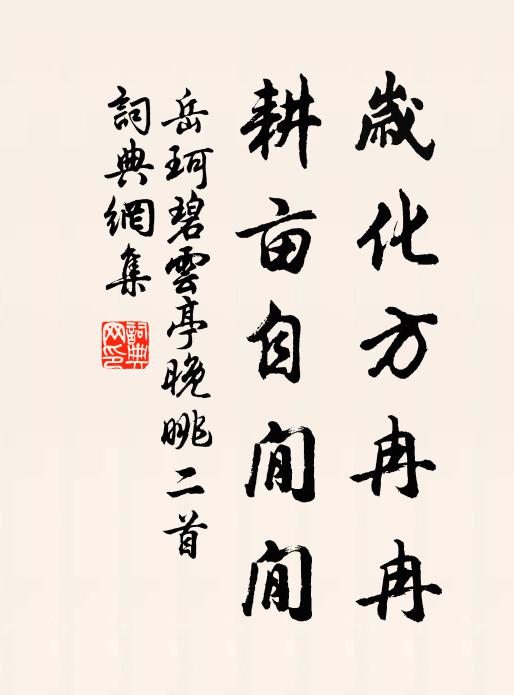 歲化方冉冉
耕亩自閒閒
岳珂碧雲亭晚眺二首
詞典網集
詞典
网印